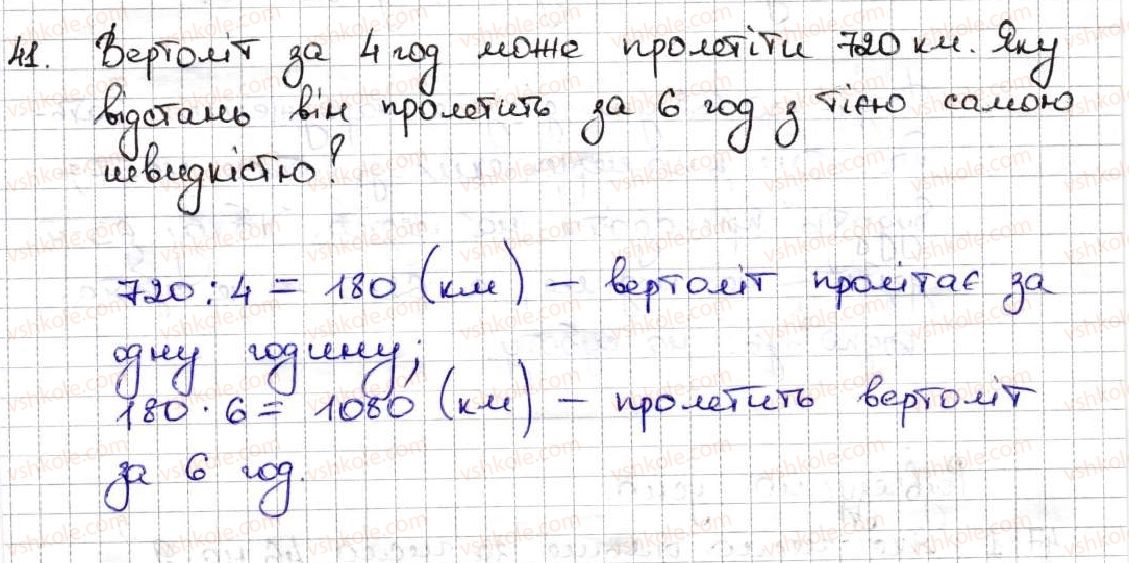 41. Вертоліт за 4 год може пролетіти 720 км. Яку
відстань він пролетить за 6 год з тією самою
швидкістю?
720 : 4 = 180 (км) – вертоліт пролітає за
одну годину;
180 · 6 = 1080 (км) – пролетить вертоліт
за 6 год.
vshkole.com